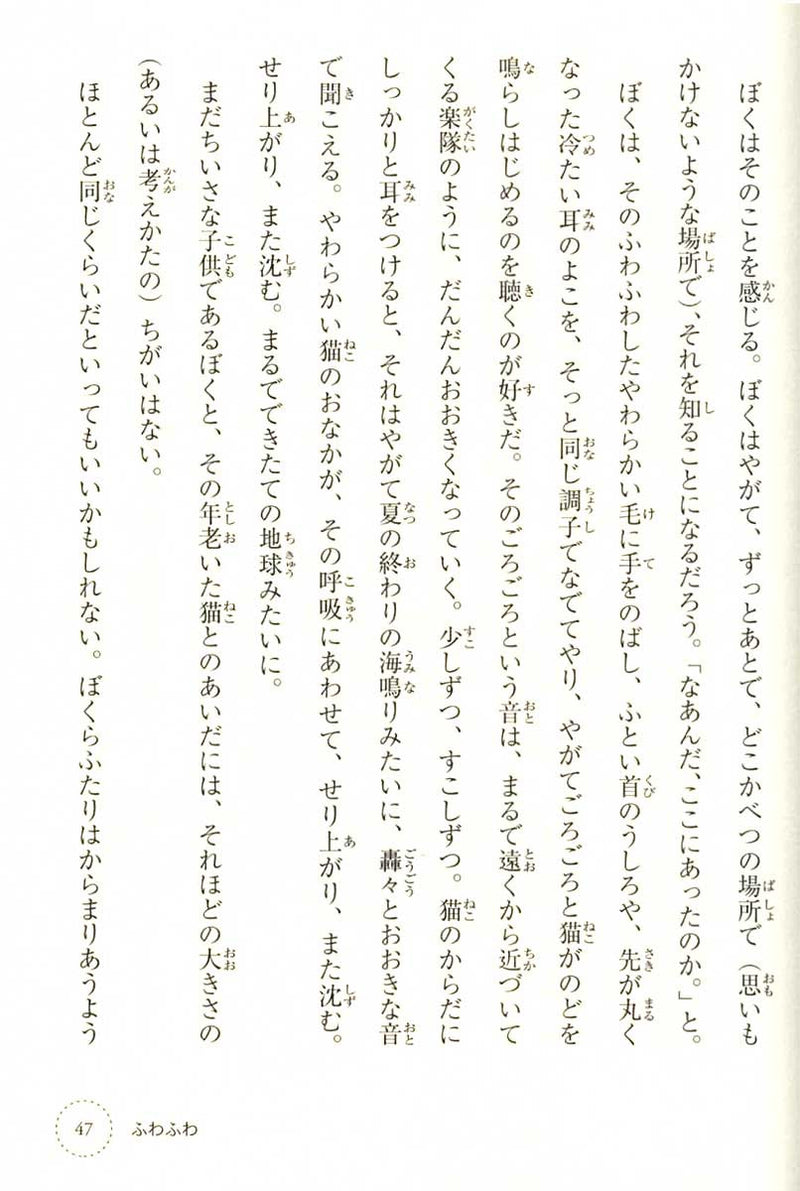 ぼくはそのことを感じる。ぼくはやがて、ずっとあとで、どこかべつの場所で（思いも
かけないような場所で）、それを知ることになるだろう。「なあんだ、ここにあったのか。」と。
ぼくは、そのふわふわしたやわらかい毛に手をのばし、ふとい首のうしろや、先が丸く
なった冷たい耳のよこを、そっと同じ調子でなでてやり、やがてごろごろと猫がのどを
鳴らしはじめるのを聴くのが好きだ。そのごろごろという音は、まるで遠くから近づいて
くる楽隊のように、だんだんおおきくなっていく。少しずつ、すこしずつ。猫のからだに
しっかりと耳をつけると、それはやがて夏の終わりの海鳴りみたいに、轟々とおおきな音
で聞こえる。やわらかい猫のおなかが、その呼吸にあわせて、せり上がり、また沈む。
せり上がり、また沈む。まるでできたての地球みたいに。
まだちいさな子供であるぼくと、その年老いた猫とのあいだには、それほどの大きさの
（あるいは考えかたの）ちがいはない。
ほとんど同じくらいだといってもいいかもしれない。ぼくらふたりはからまりあうよう
47 ふわふわ